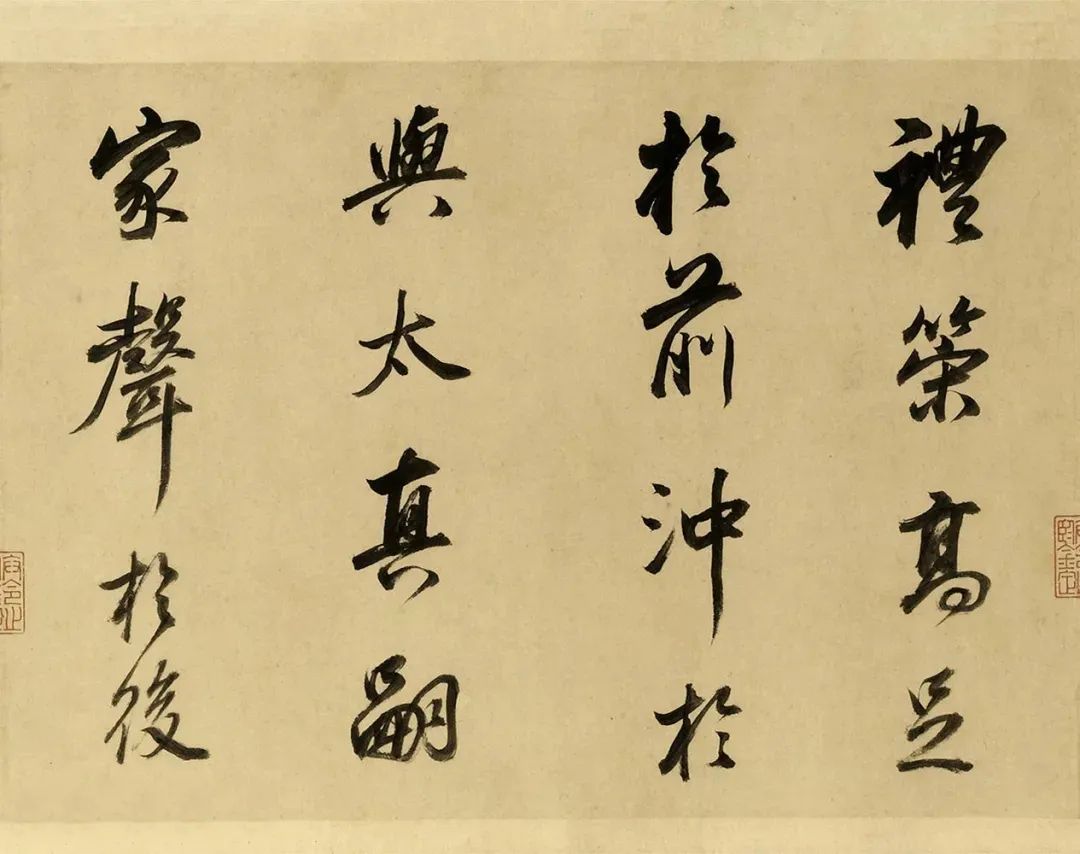 禮策高足
於前沖於
與太真嗣
家聲於後